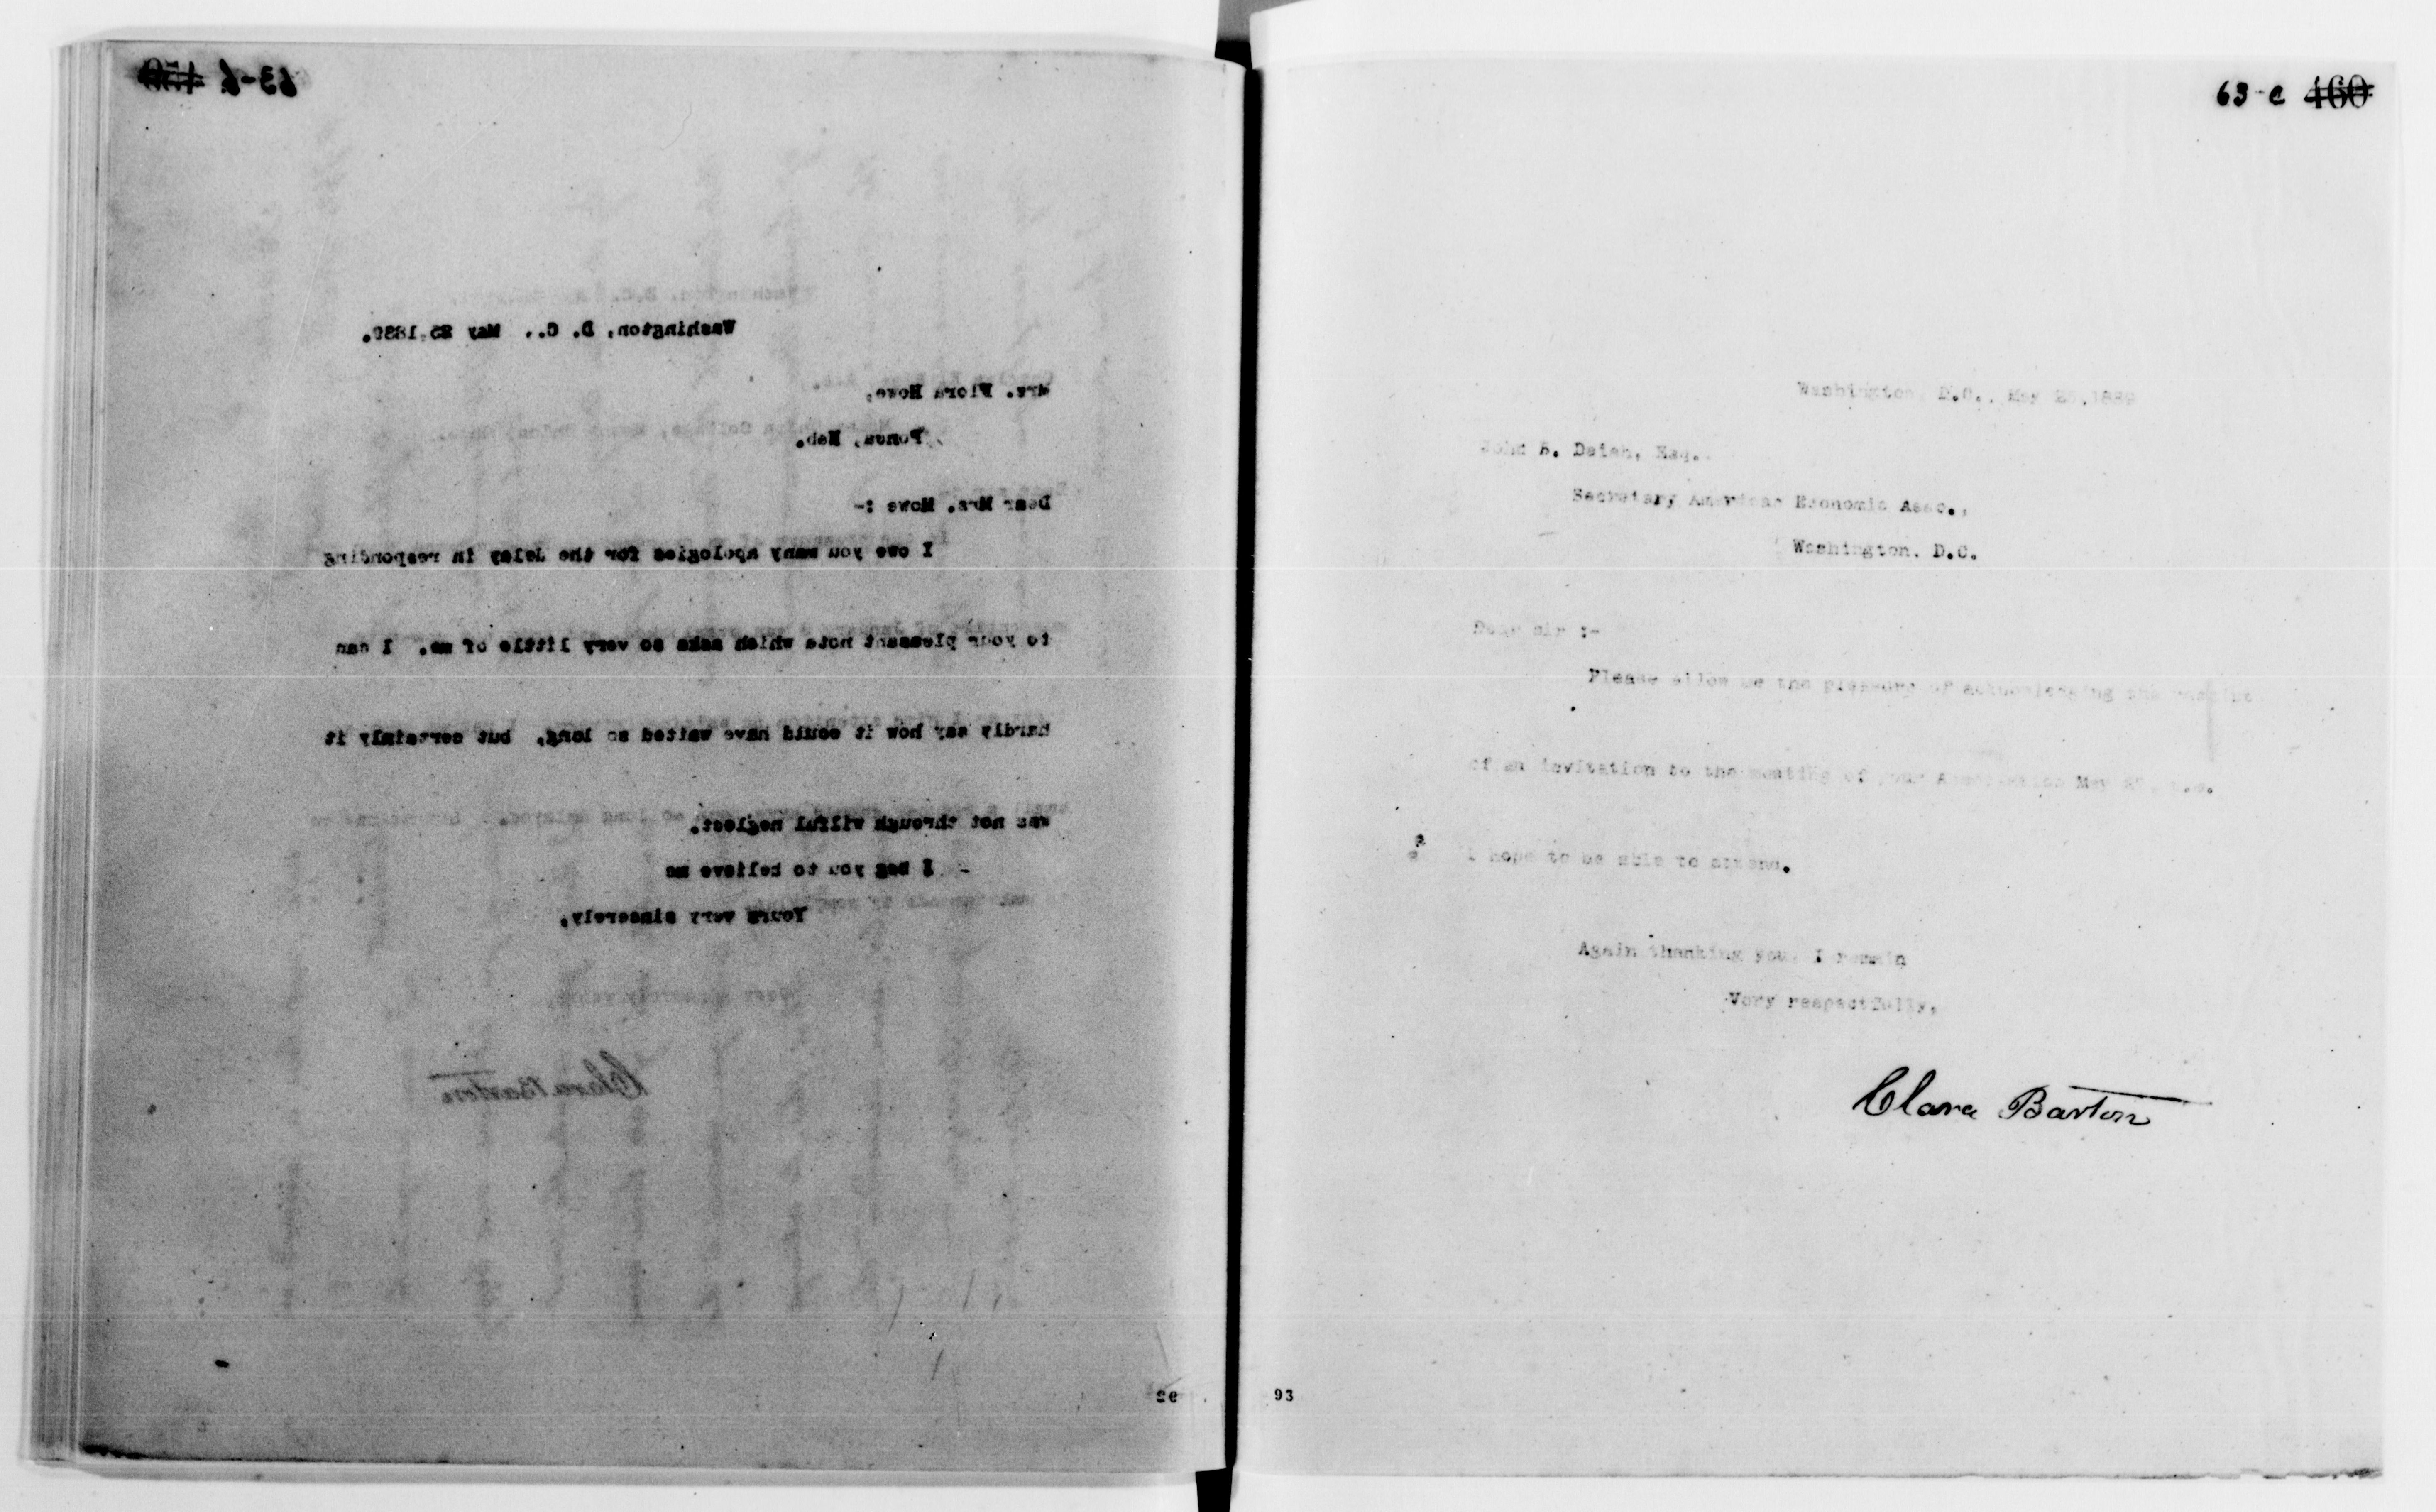 63-b
Washington, D. C., May 25, 1889.
Mrs. Flora Howe,
Ponca, Neb.
Dear Mrs. Howe :-
I owe you many apologies for the delay in responding
to your pleasant note which asks so very little of me. I can
hardly say how it could have waited so long, but certainly it
was not through wilful neglect.
I beg you to believe me
Yours very sincerely,
Clara Barton
92
63-c 460
Washington, D.C., May 1889
John Esq.
Secretary American Economic Assc.,
Washington. D.C.
Dear sir :-
Please allow me the pleasure of acknowledging the receipt
of an invitation to the meeting of your Association May
I hope to be able to attend.
Again thanking you, I remain
Very respectfully,
Clara Barton
93